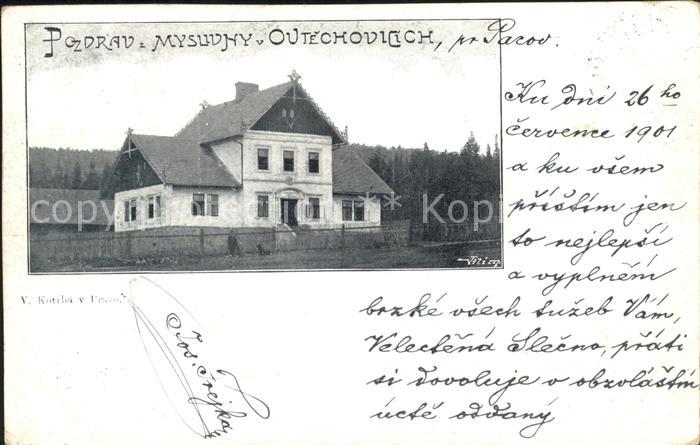 Pozdrav z myslivny v Outěchovicích, pr Pacov.
Ku dni 26 ho
července 1901
a ku všem
příštím jen
to nejlepší
a vyplněm
brzké všech tužeb Vám,
Velectěná Slečno, přáti
si dovoluje v obzvláštní
úctě oddaný
Jos. Trejka
V. Kotrba v